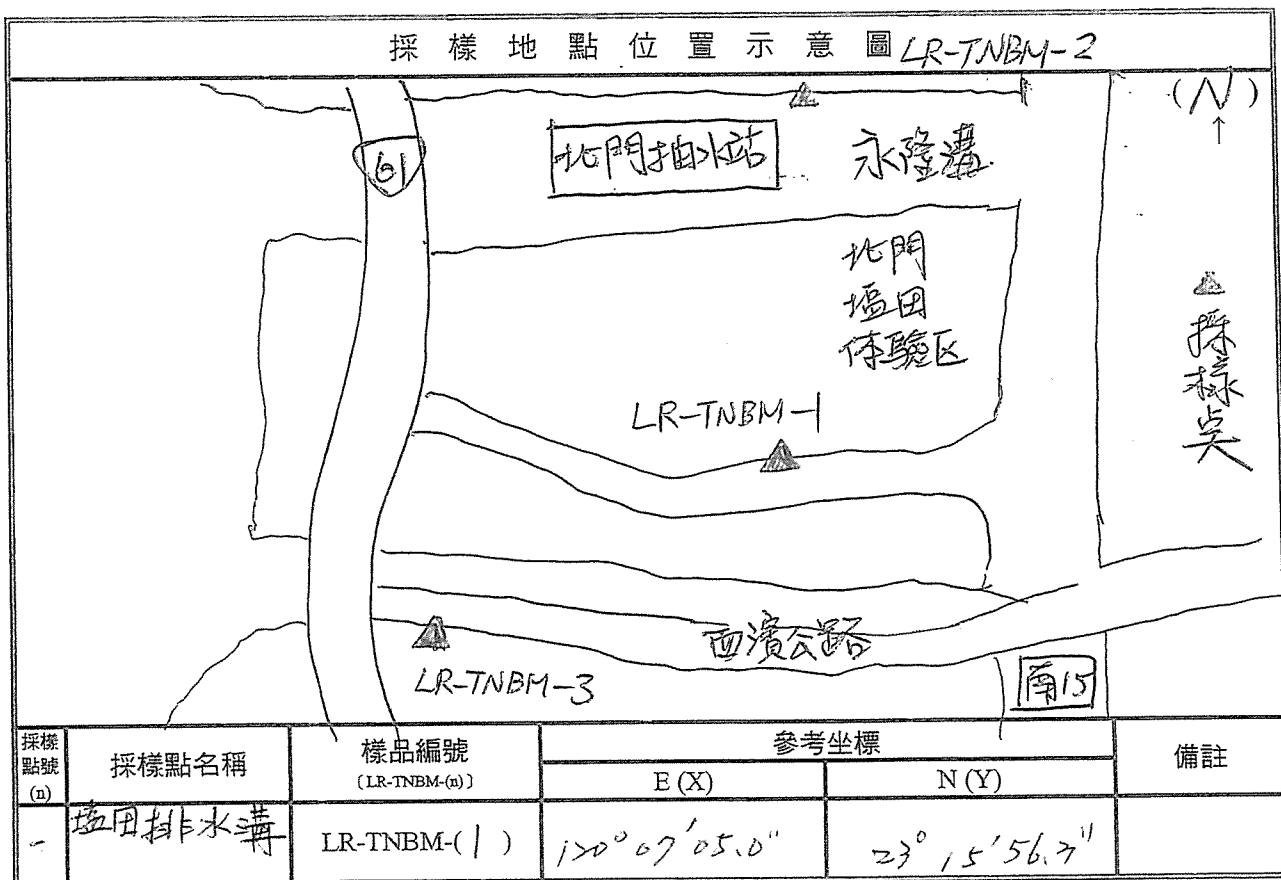 採樣地點位置示意圖 LR-TNBM-2
(N)
↑
61
北門抽水站
永隆溝
北門
塩田
体驗区
採樣点
LR-TNBM-1
LR-TNBM-3
西濱公路
南15
採樣點號(n)
採樣點名稱
樣品編號
〔LR-TNBM-(n)〕
參考坐標
E (X)
N (Y)
備註
塩田排水溝
LR-TNBM-(1)
120° 07' 05.0"